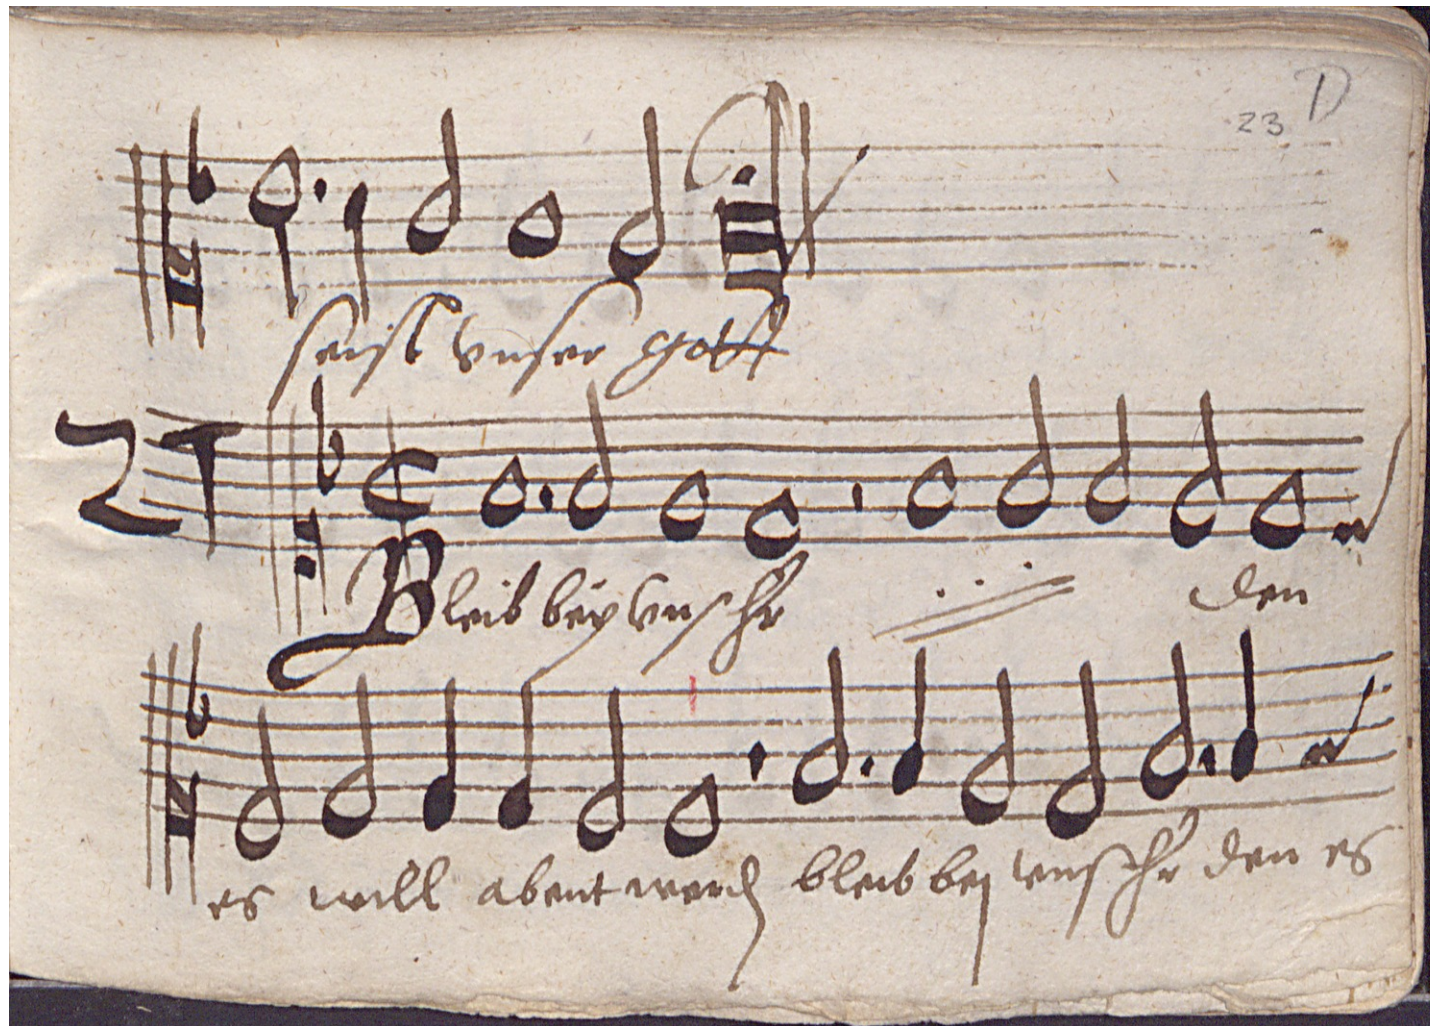 23 D
heist vnser gott
21
Bleib beÿ vns hr den
es will abent werdn bleib bej vns hr den es